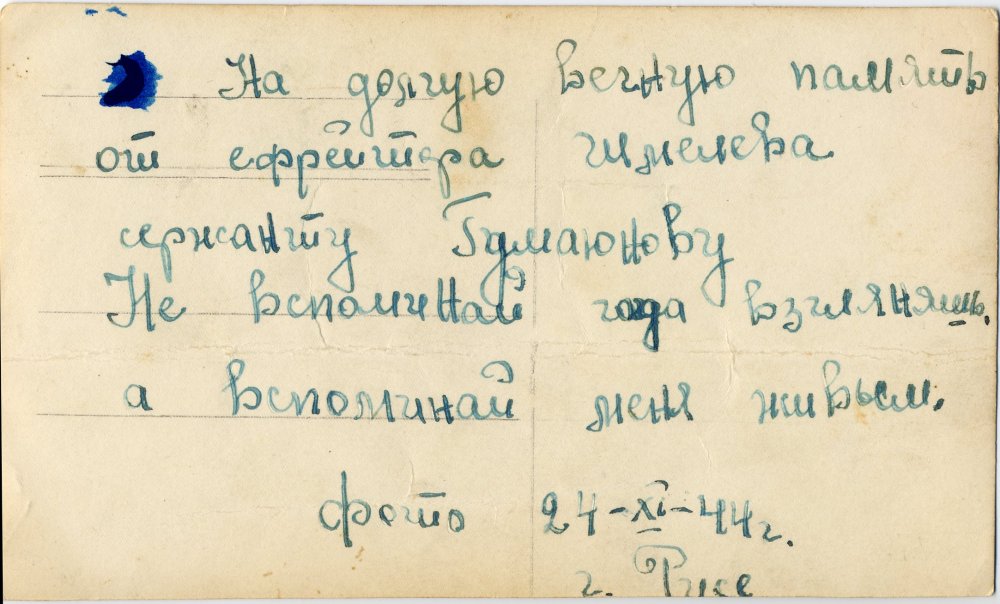 На долгую вечную память
от ефрейтора Шмелева
сержанту Гумаюнову
Не вспоминай когда взглянешь.
а вспоминай меня живым.
фото 24-XI-44г.
г. Русе